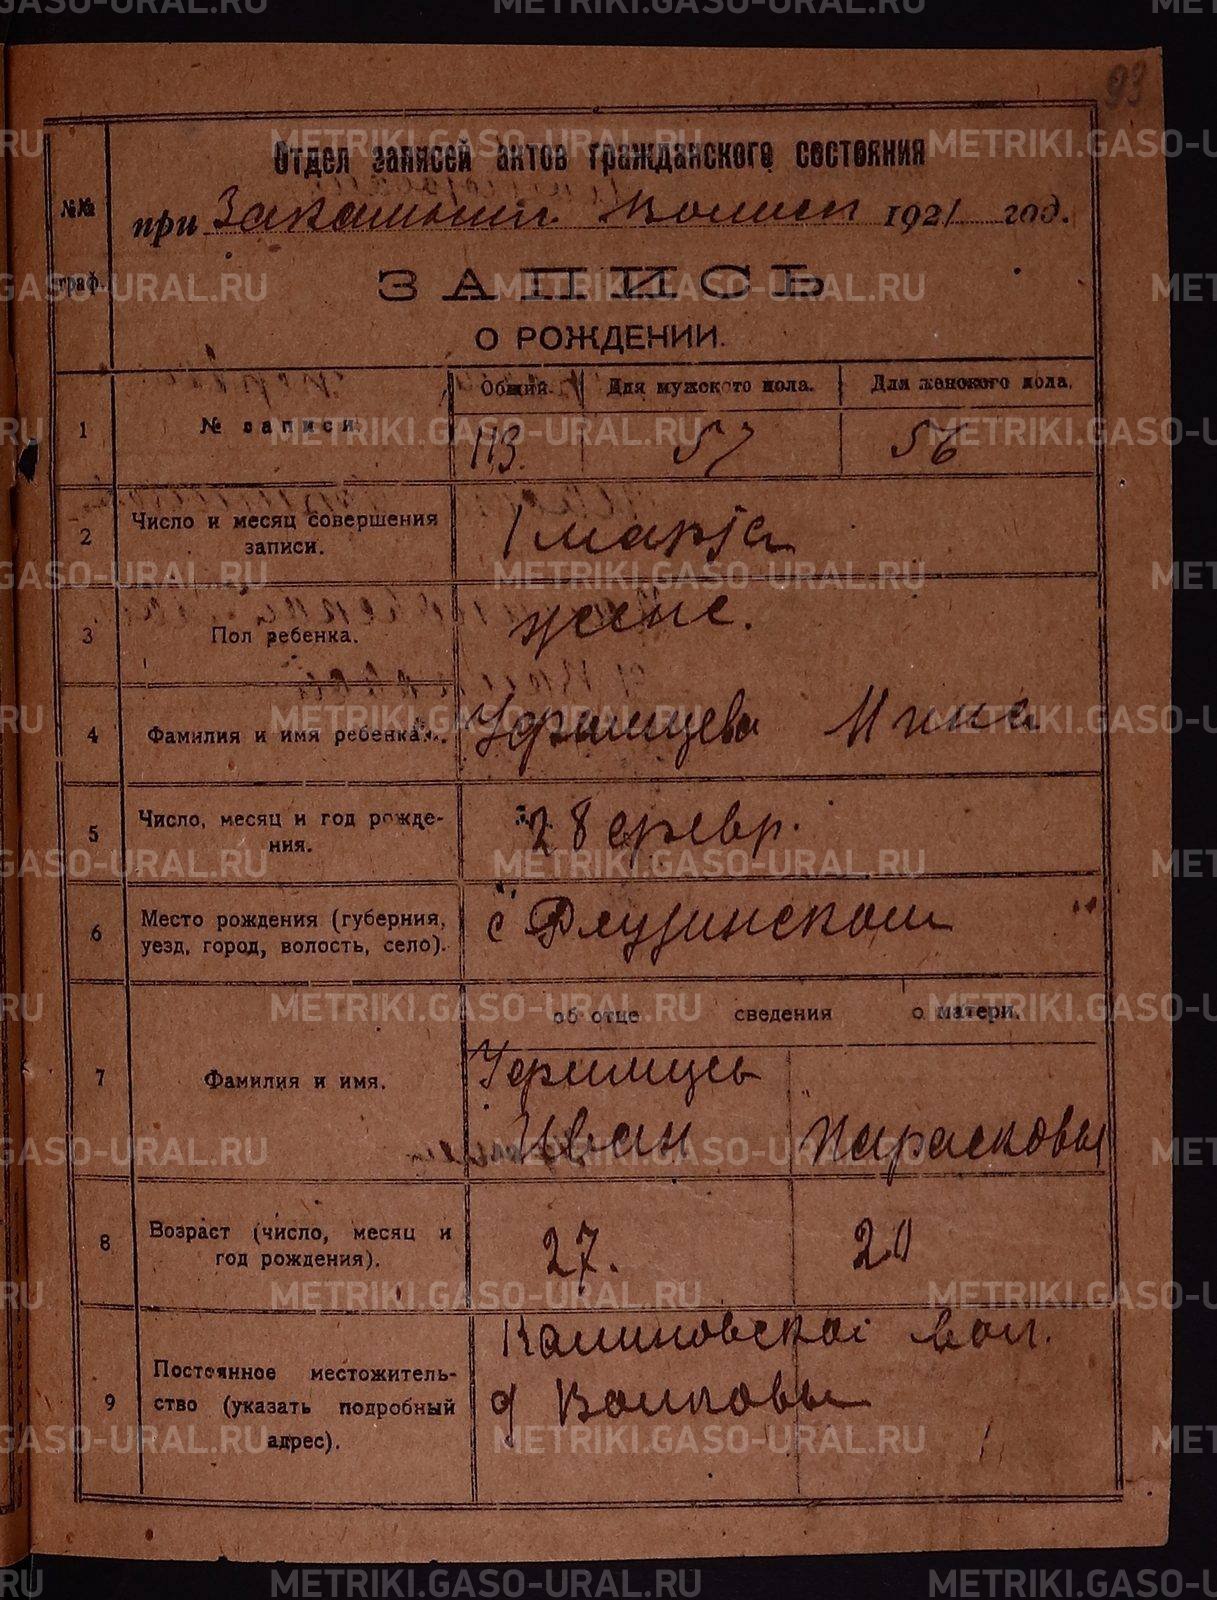 93
Отдел записей актов гражданского состояния
№№ граф.
при Закамыш. Волисп 1921 год.
ЗАПИСЬ
О РОЖДЕНИИ.
1
№ записи
Общий.
Для мужского пола.
Для женского пола.
113.
57
56
2
Число и месяц совершения
записи.
1 марта
3
Пол ребенка.
женс.
4
Фамилия и имя ребенка.
Уфимцева Нина
5
Число, месяц и год рожде-
ния.
28 февр.
6
Место рождения (губерния,
уезд, город, волость, село).
с
7
Фамилия и имя.
об отце сведения о матери.
Уфимцев
Иван
Парасковья
8
Возраст (число, месяц и
год рождения).
27.
20
9
Постоянное местожитель-
ство (указать подробный
адрес).
Калиновской вол.
д Волковы
METRIKI.GASO-URAL.RU